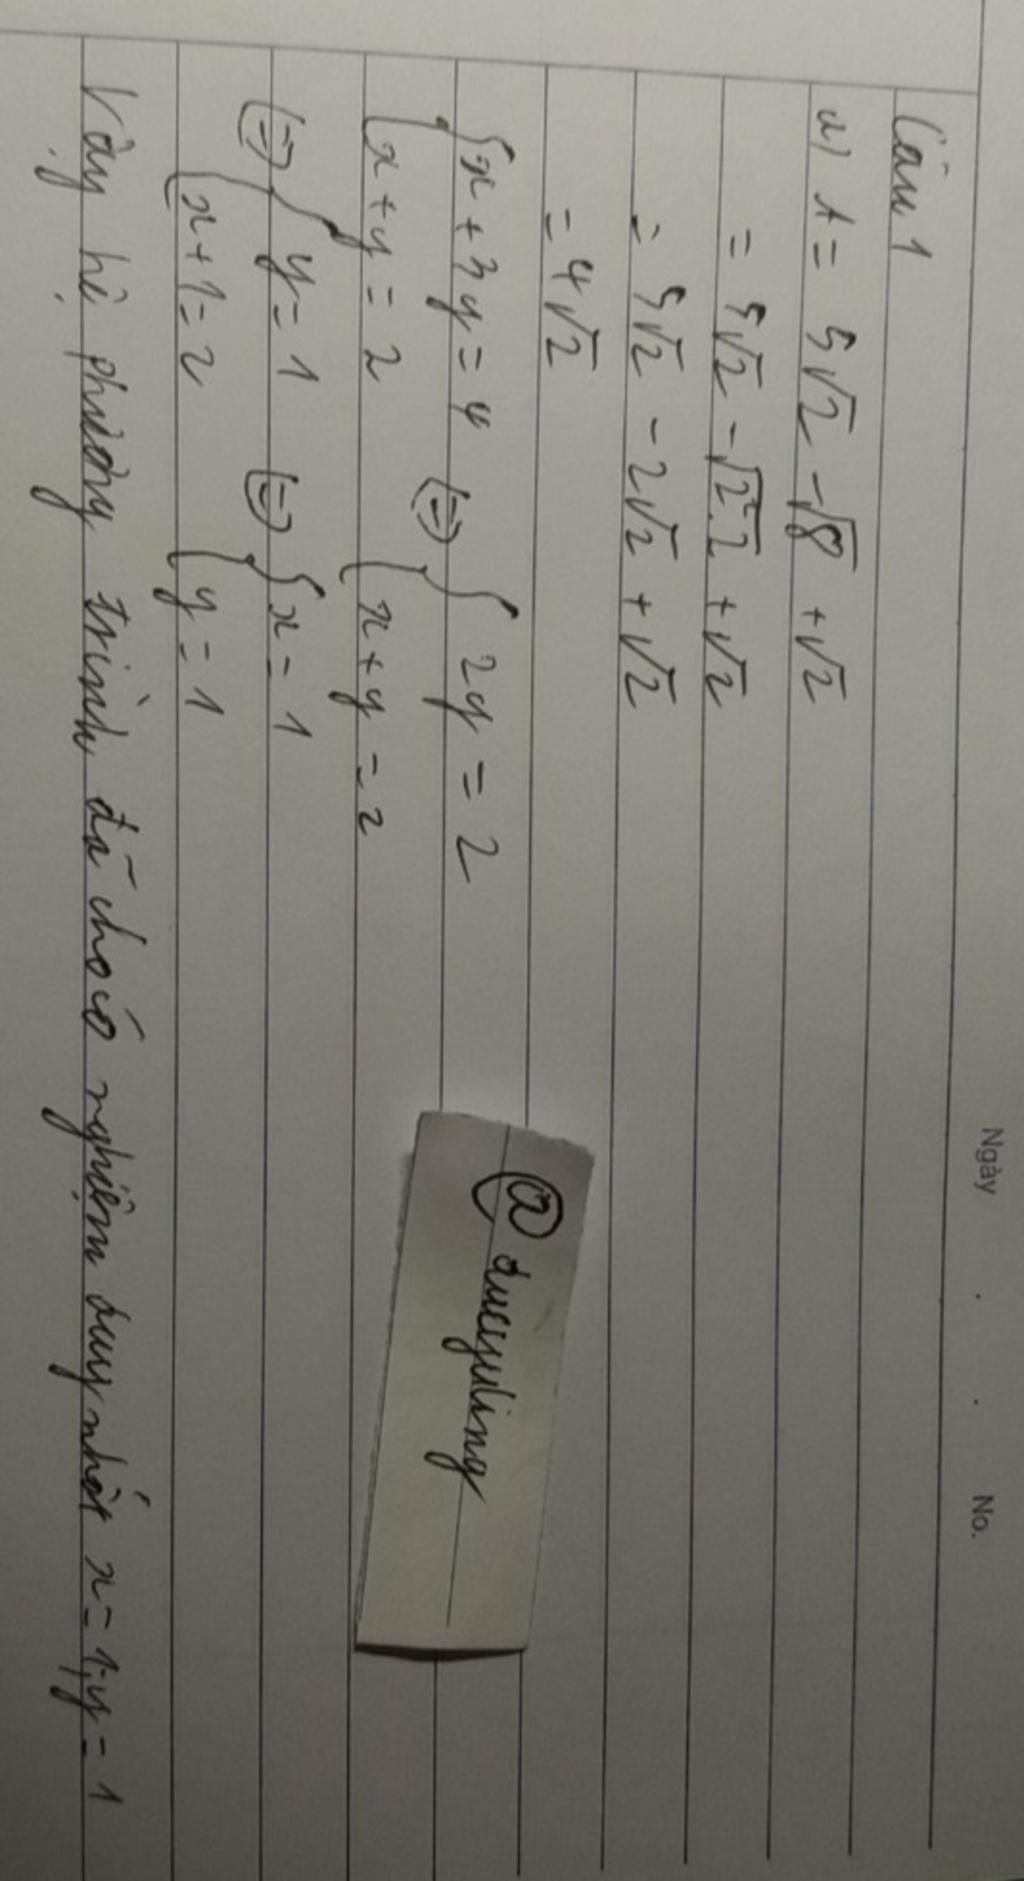 Ngày . . No.
Câu 1
a) A = 5√2 - √8 + √2
= 5√2 - √2².2 + √2
= 5√2 - 2√2 + √2
= 4√2
{x + 3y = 4 (=) {2y = 2
{x + y = 2 {x + y = 2
(=) {y = 1 (=) {x = 1
{x + 1 = 2 {y = 1
Vậy hệ phương trình đã cho có nghiệm duy nhất x = 1; y = 1
@ducyuling